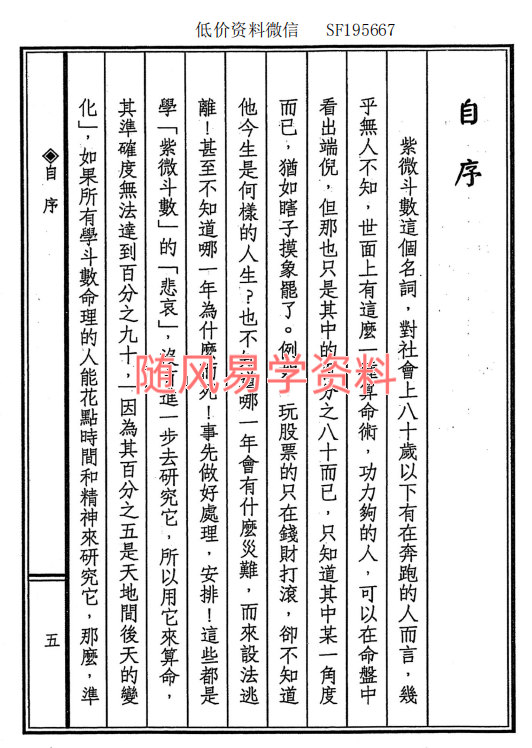 低价资料微信 SF195667
自序
紫微斗數這個名詞，對社會上八十歲以下有在奔跑的人而言，幾
乎無人不知，世面上有這麼一種算命術，功力夠的人，可以在命盤中
看出端倪，但那也只是其中的百分之八十而已，只知道其中某一角度
而已，猶如瞎子摸象罷了。例如 玩股票的只在錢財打滾，卻不知道
他今生是何樣的人生？也不知道哪一年會有什麼災難，而來設法逃
離！甚至不知道哪一年為什麼而死！事先做好處理，安排！這些都是
學「紫微斗數」的「悲哀」，沒有進一步去研究它，所以用它來算命，
其準確度無法達到百分之九十，因為其百分之五是天地間後天的變
化」，如果所有學斗數命理的人能花點時間和精神來研究它，那麼，準
◈自序
五
随风易学资料